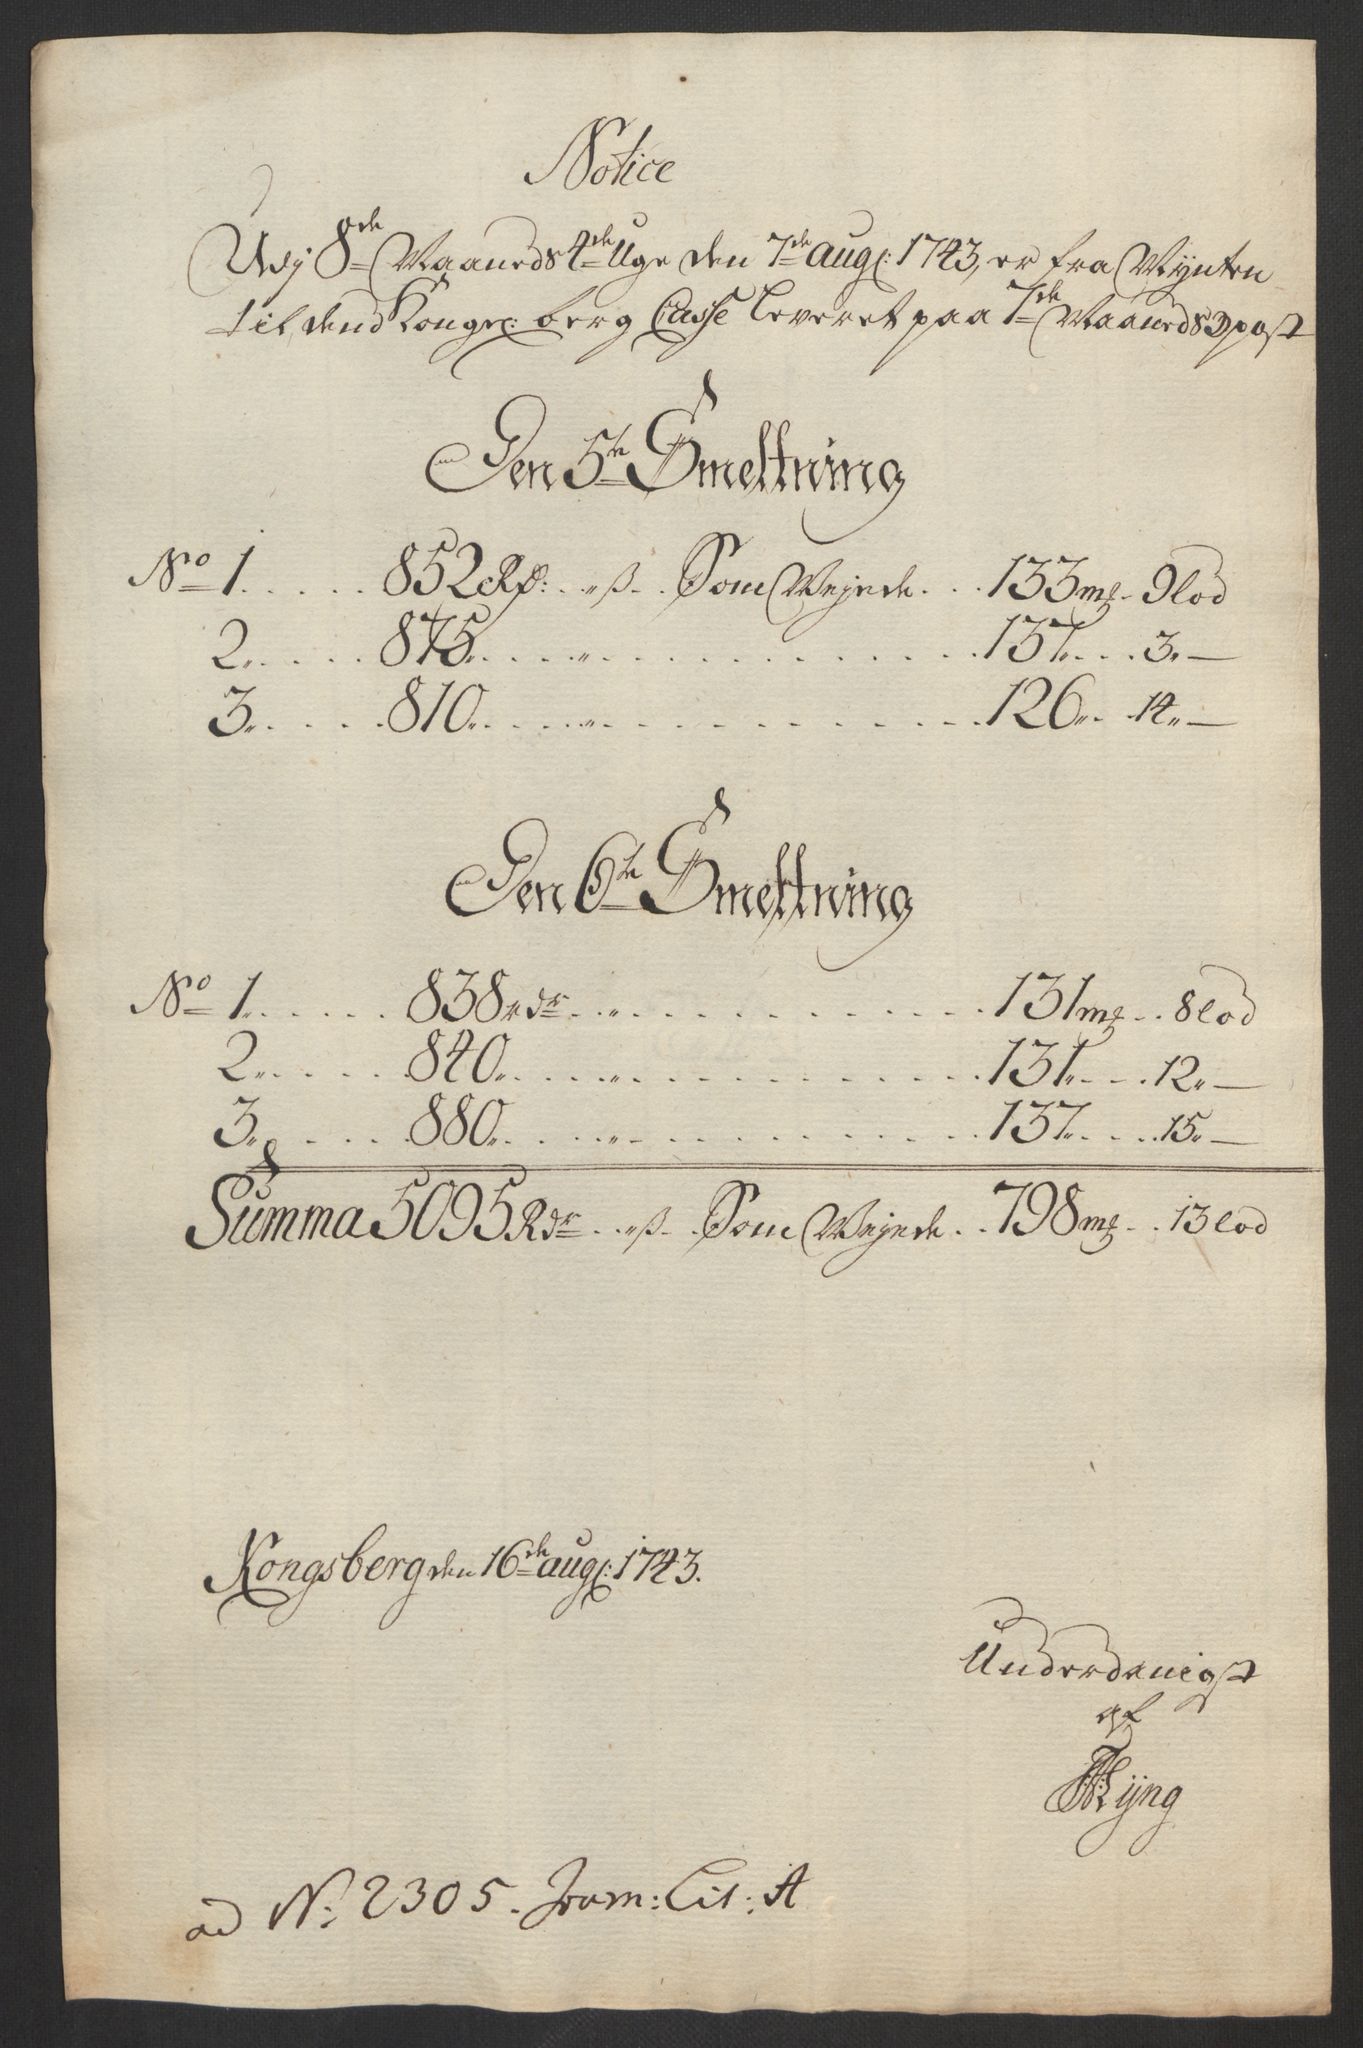 Notice
Udj 8de Maaneds 4de Uge den 7de aug: 1743, er fra Mÿnten
til dend Kongel: berg Casse leveret paa 7de Maaneds Depost
Den 5te Smeltning
No 1. 852 Rd: „ ß Som Vejede 133 mk 9 lod
2. 875 „ 137 „ 3 „ —
3. 810 „ 126 „ 14 „ —
Den 6te Smeltning
No 1. 838 rdr „ 131 mk 8 lod
2. 840 „ 131 „ 12 „ —
3. 880 „ 137 „ 15 „ —
Summa 5095 Rdr „ ß Som Vejede 798 mk 13 lod
Kongsberg den 16de aug: 1743.
Underdanigst
af
Rÿng
ad N: 2305. Lit: A